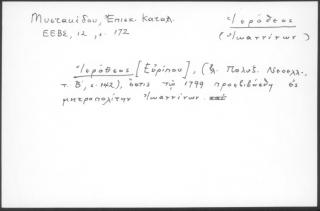 Μυστακίδου, Ἐπισκ. Καταλ.
ΕΕΒΣ, 12, σ. 172
Ἱερόθεος
(Ἰωαννίνων)
Ἱερόθεος [Εὐρίπου], (βλ. Πολυξ. Νεοελλ.,
τ. Β΄, σ. 142), ὅστις τῷ 1799 προεβιβάσθη ὡς
μητροπολίτην Ἰωαννίνων.